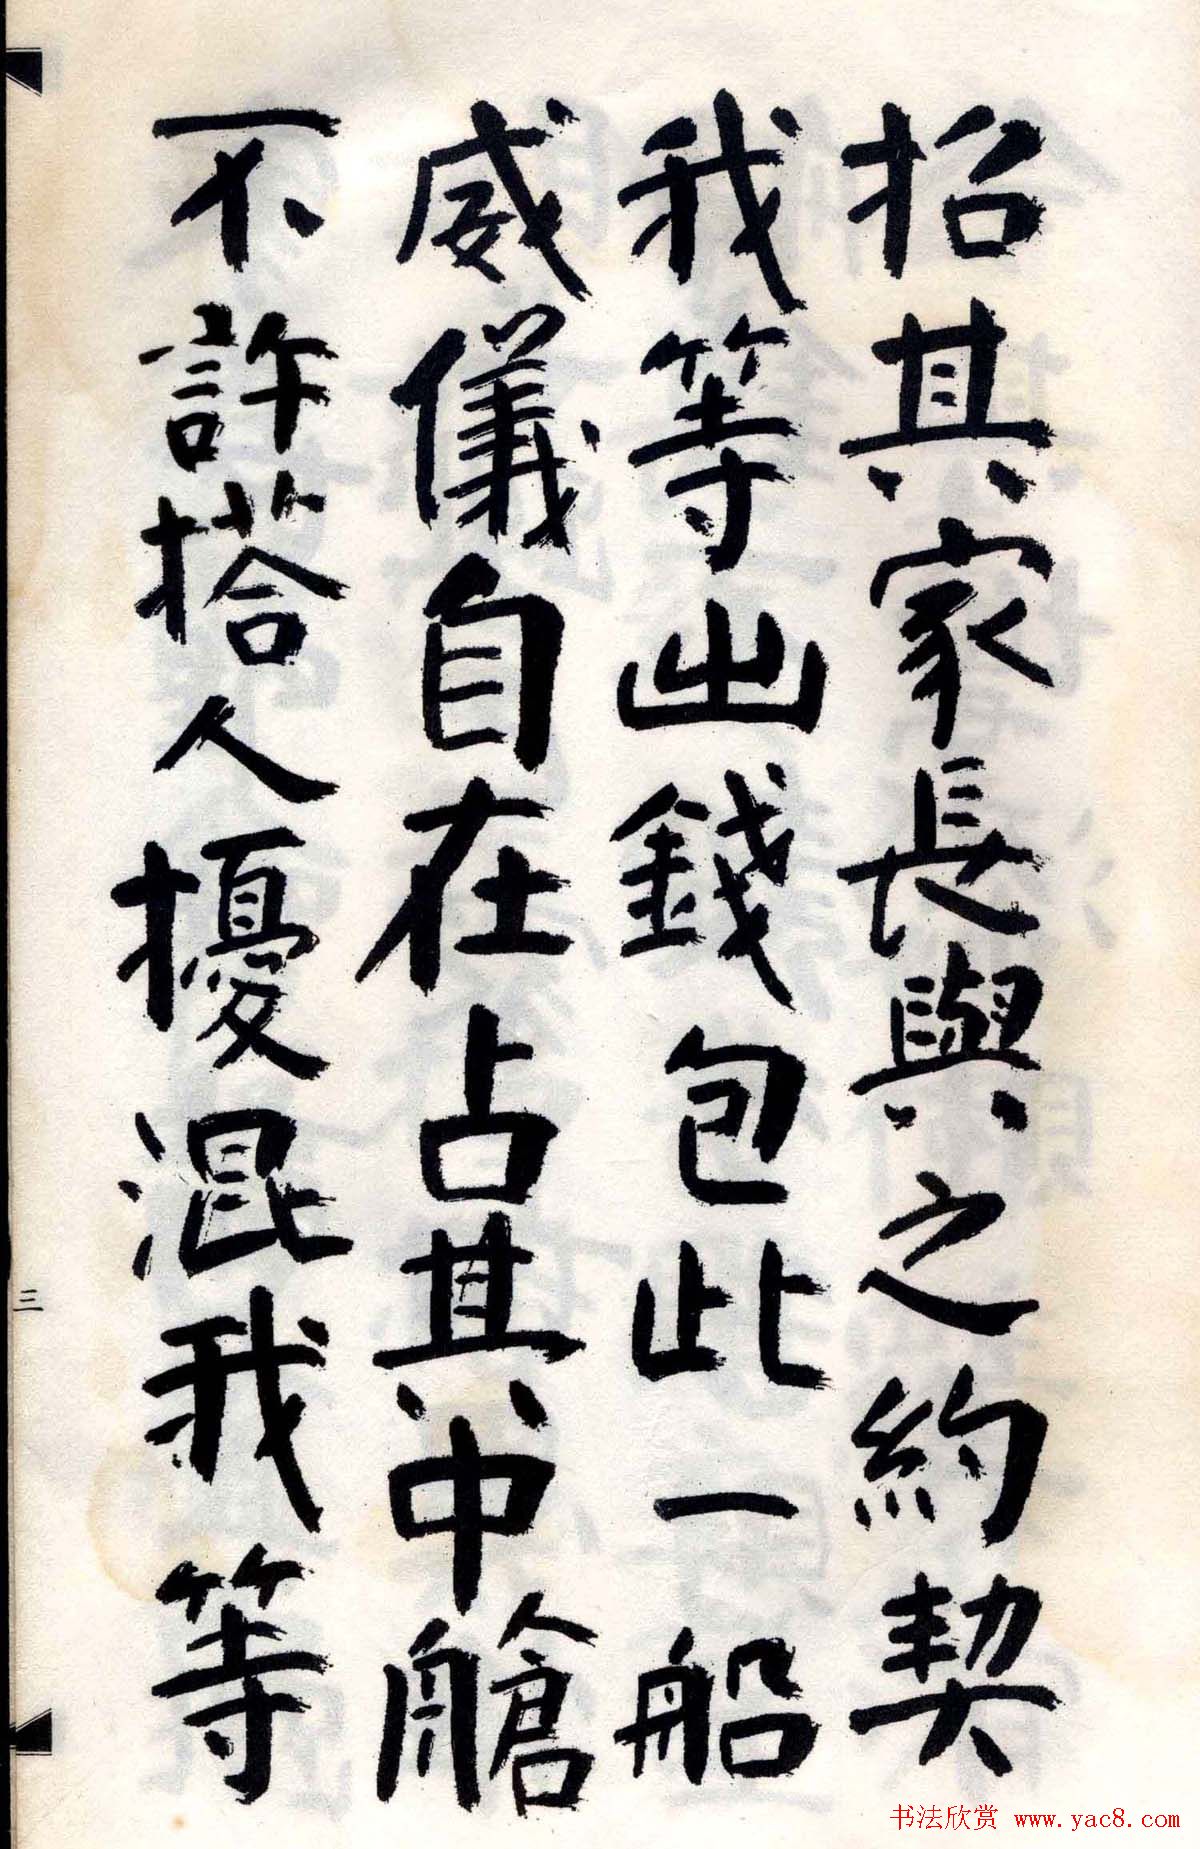 招其家長與之約契
我等出錢包此一船
威儀自在占其中艙
不許搭人擾混我等
三
书法欣赏 www.yac8.com